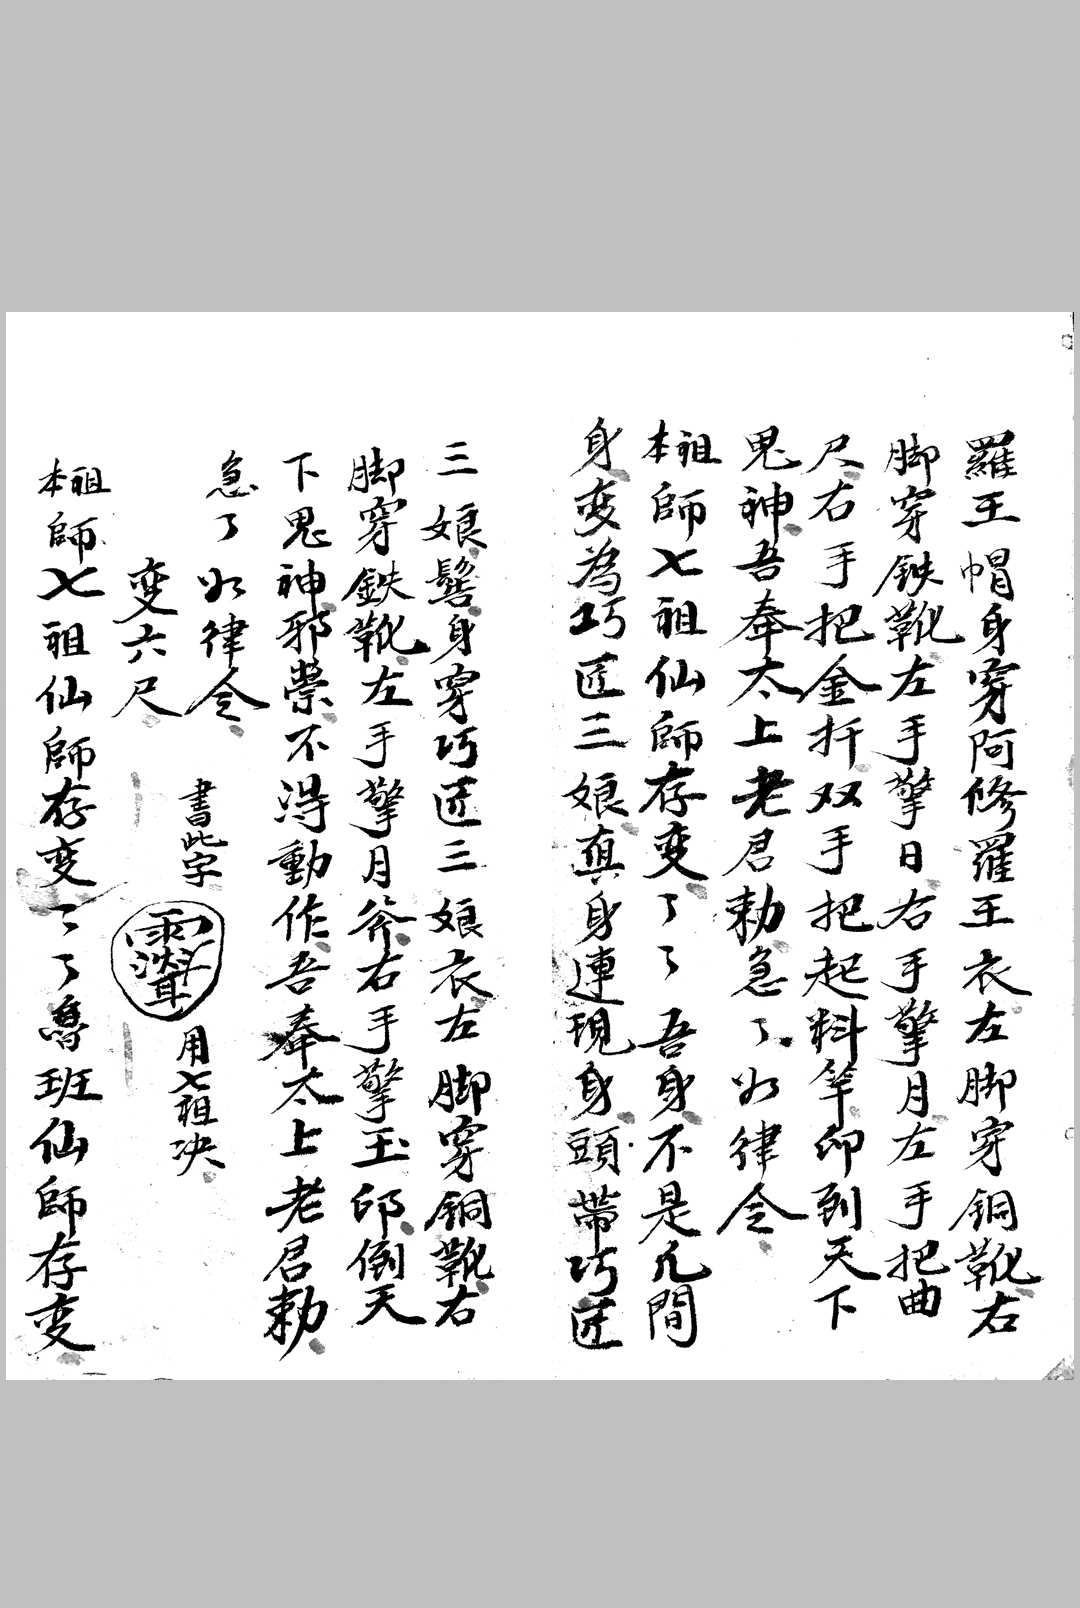 羅王帽身穿阿修羅王衣左脚穿銅靴右
脚穿鉄靴左手擎日右手擎月左手把曲
尺右手把金扦双手把起料竿卯到天下
鬼神吾奉太上老君勅急了如律令
本祖師七祖仙師存变了了吾身不是凡間
身变為巧匠三娘真身連現身頭帶巧匠
三娘髻身穿巧匠三娘衣左脚穿銅靴右
脚穿鉄靴左手擎月斧右手擎玉卯倒天
下鬼神邪祟不得動作吾奉太上老君勅
急了如律令
書此字
用七祖决
变六尺
本祖師七祖仙師存变了了魯班仙師存变